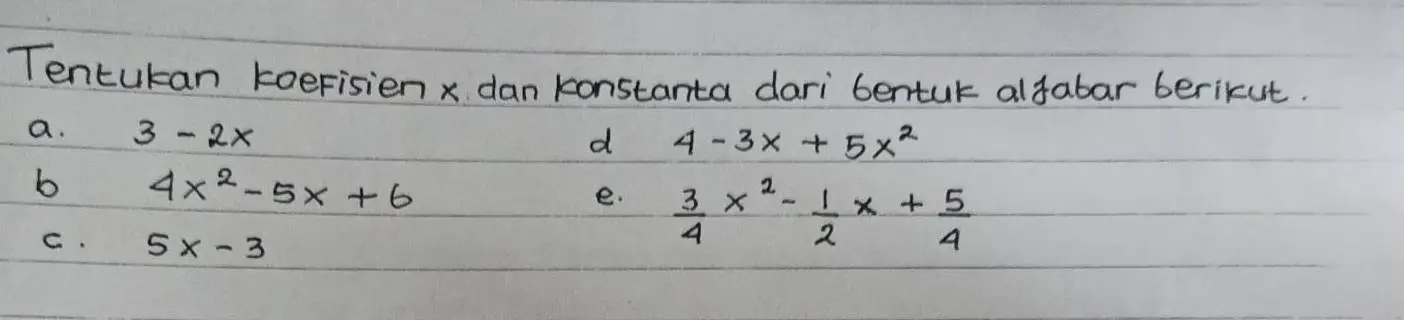 Tentukan koefisien x dan konstanta dari bentuk aljabar berikut.
a. 3 - 2x d 4 - 3x + 5x²
b 4x² - 5x + 6 e. 3/4 x² - 1/2 x + 5/4
c. 5x - 3